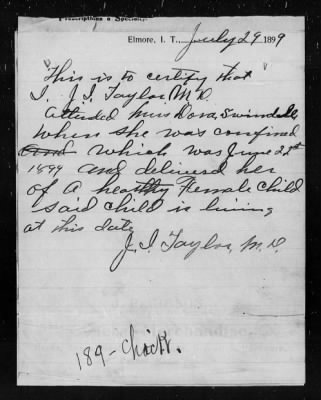 Prescriptions a Specialty.
Elmore, I. T., July 29 1899
"This is to certify that
I. J. I. Taylor M.D.
attended Miss Dora, Swindall,
when she was confined
and which was June 22nd
1899 and delivered her
of a healthy Female Child
said child is living
at this date
J. I. Taylor, M. D.
189- Chick.